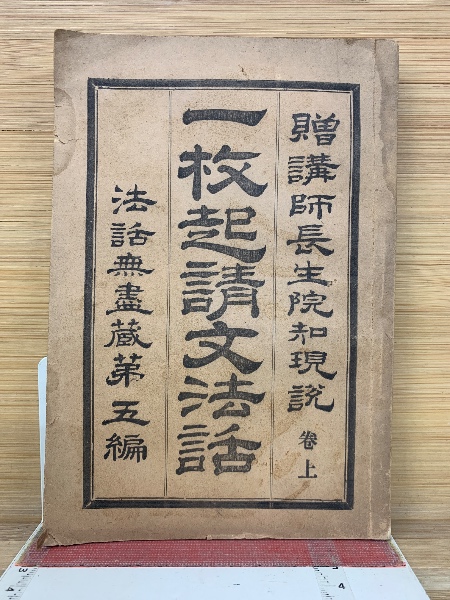 贈講師長生院知現説 卷上
一枚起請文法話
法話無盡蔵第五編
3
4